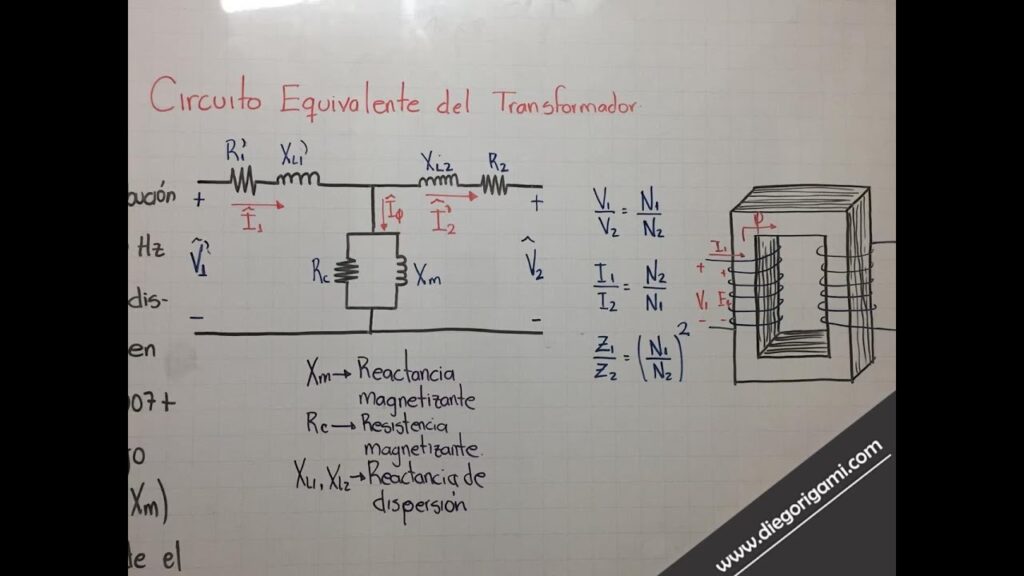 Circuito Equivalente del Transformador
R1' XL1' XL2 R2
ución
Hz
dis-
en
007+
Xm)
de el
+ Î1 Îφ Î2' +
V̂1' Rc Xm V̂2
- -
Xm → Reactancia
magnetizante
Rc → Resistencia
magnetizante.
XL1, XL2 → Reactancia de
dispersión
V1/V2 = N1/N2
I1/I2 = N2/N1
Z1/Z2 = (N1/N2)²
φ
I1
+ +
V1 E1
- -
www.diegorigami.com